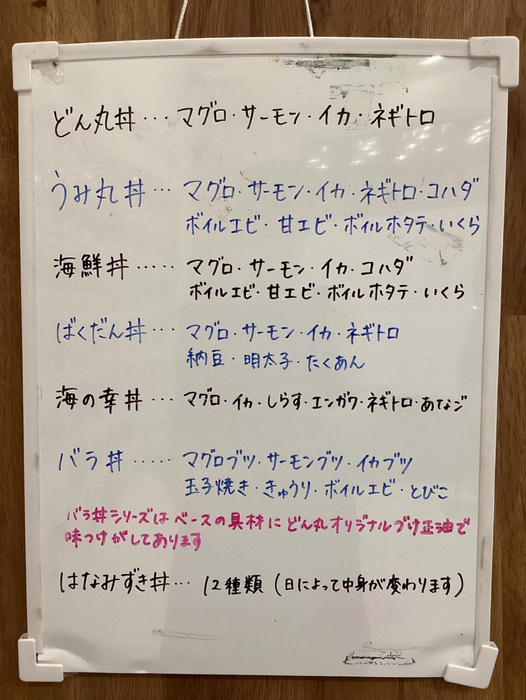 どん丸丼・・・マグロ・サーモン・イカ・ネギトロ
うみ丸丼・・・マグロ・サーモン・イカ・ネギトロ・コハダ
ボイルエビ・甘エビ・ボイルホタテ・いくら
海鮮丼・・・・・マグロ・サーモン・イカ・コハダ
ボイルエビ・甘エビ・ボイルホタテ・いくら
ばくだん丼・・・マグロ・サーモン・イカ・ネギトロ
納豆・明太子・たくあん
海の幸丼・・・マグロ・イカ・しらす・エンガワ・ネギトロ・あなご
バラ丼・・・・・マグロブツ・サーモンブツ・イカブツ
玉子焼き・きゅうり・ボイルエビ・とびこ
バラ丼シリーズはベースの具材にどん丸オリジナルづけ正油で
味つけがしてあります
はなみずき丼・・・12種類(日によって中身が変わります)